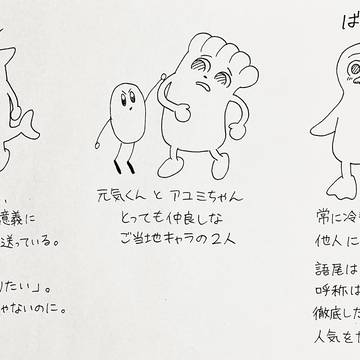 意義に
送っている。
りたい」。
ゃないのに。
元気くん と アユミちゃん
とっても仲良しな
ご当地キャラの2人
ば
常に冷
他人に
語尾は
呼称は
徹底した
人気を